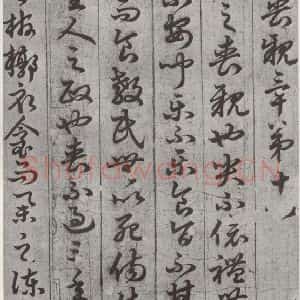 喪親章第十八
之喪親也哭不偯禮
不安聞樂不樂食旨不甘
而食教民無以死傷
聖人之政也喪不過三年
棺槨衣衾而舉之陳
Shufawang.CN